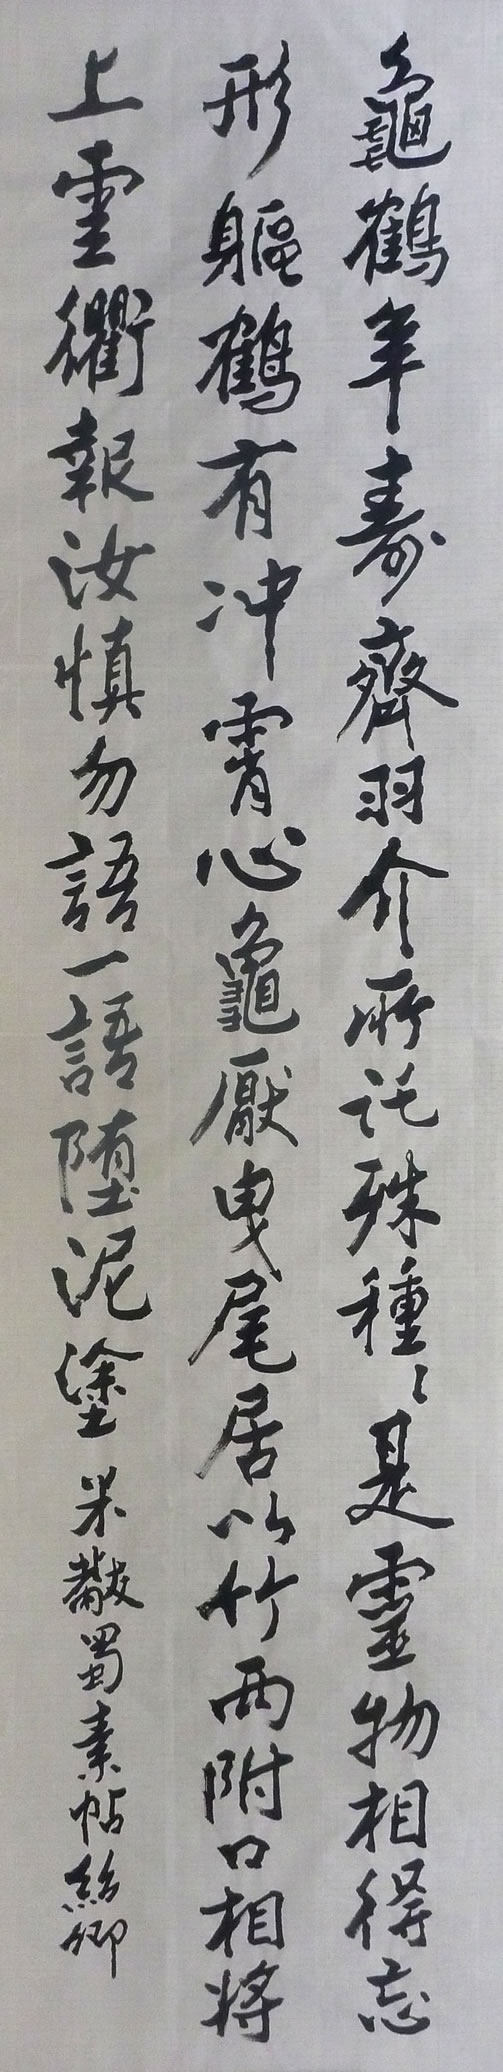 龜鶴年壽齊羽介所託殊種〻是靈物相得忘
形軀鶴有冲霄心龜厭曳尾居以竹兩附口相將
上雲衢報汝慎勿語一語堕泥塗 米黻蜀素帖